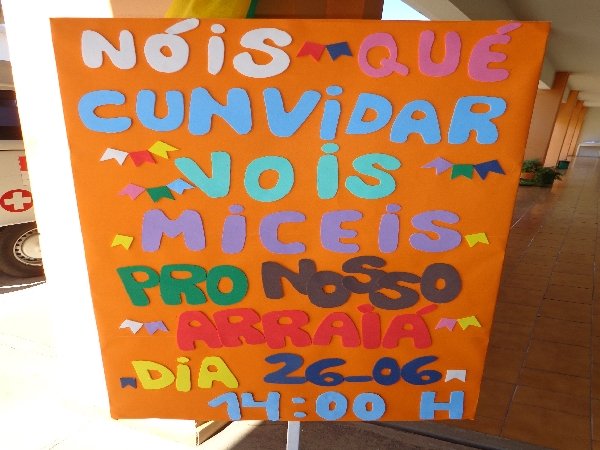 NÓIS QUÉ
CUNVIDAR
VOIS
MICEIS
PRO NOSSO
ARRAIÁ
DIA 26-06
14:00 H